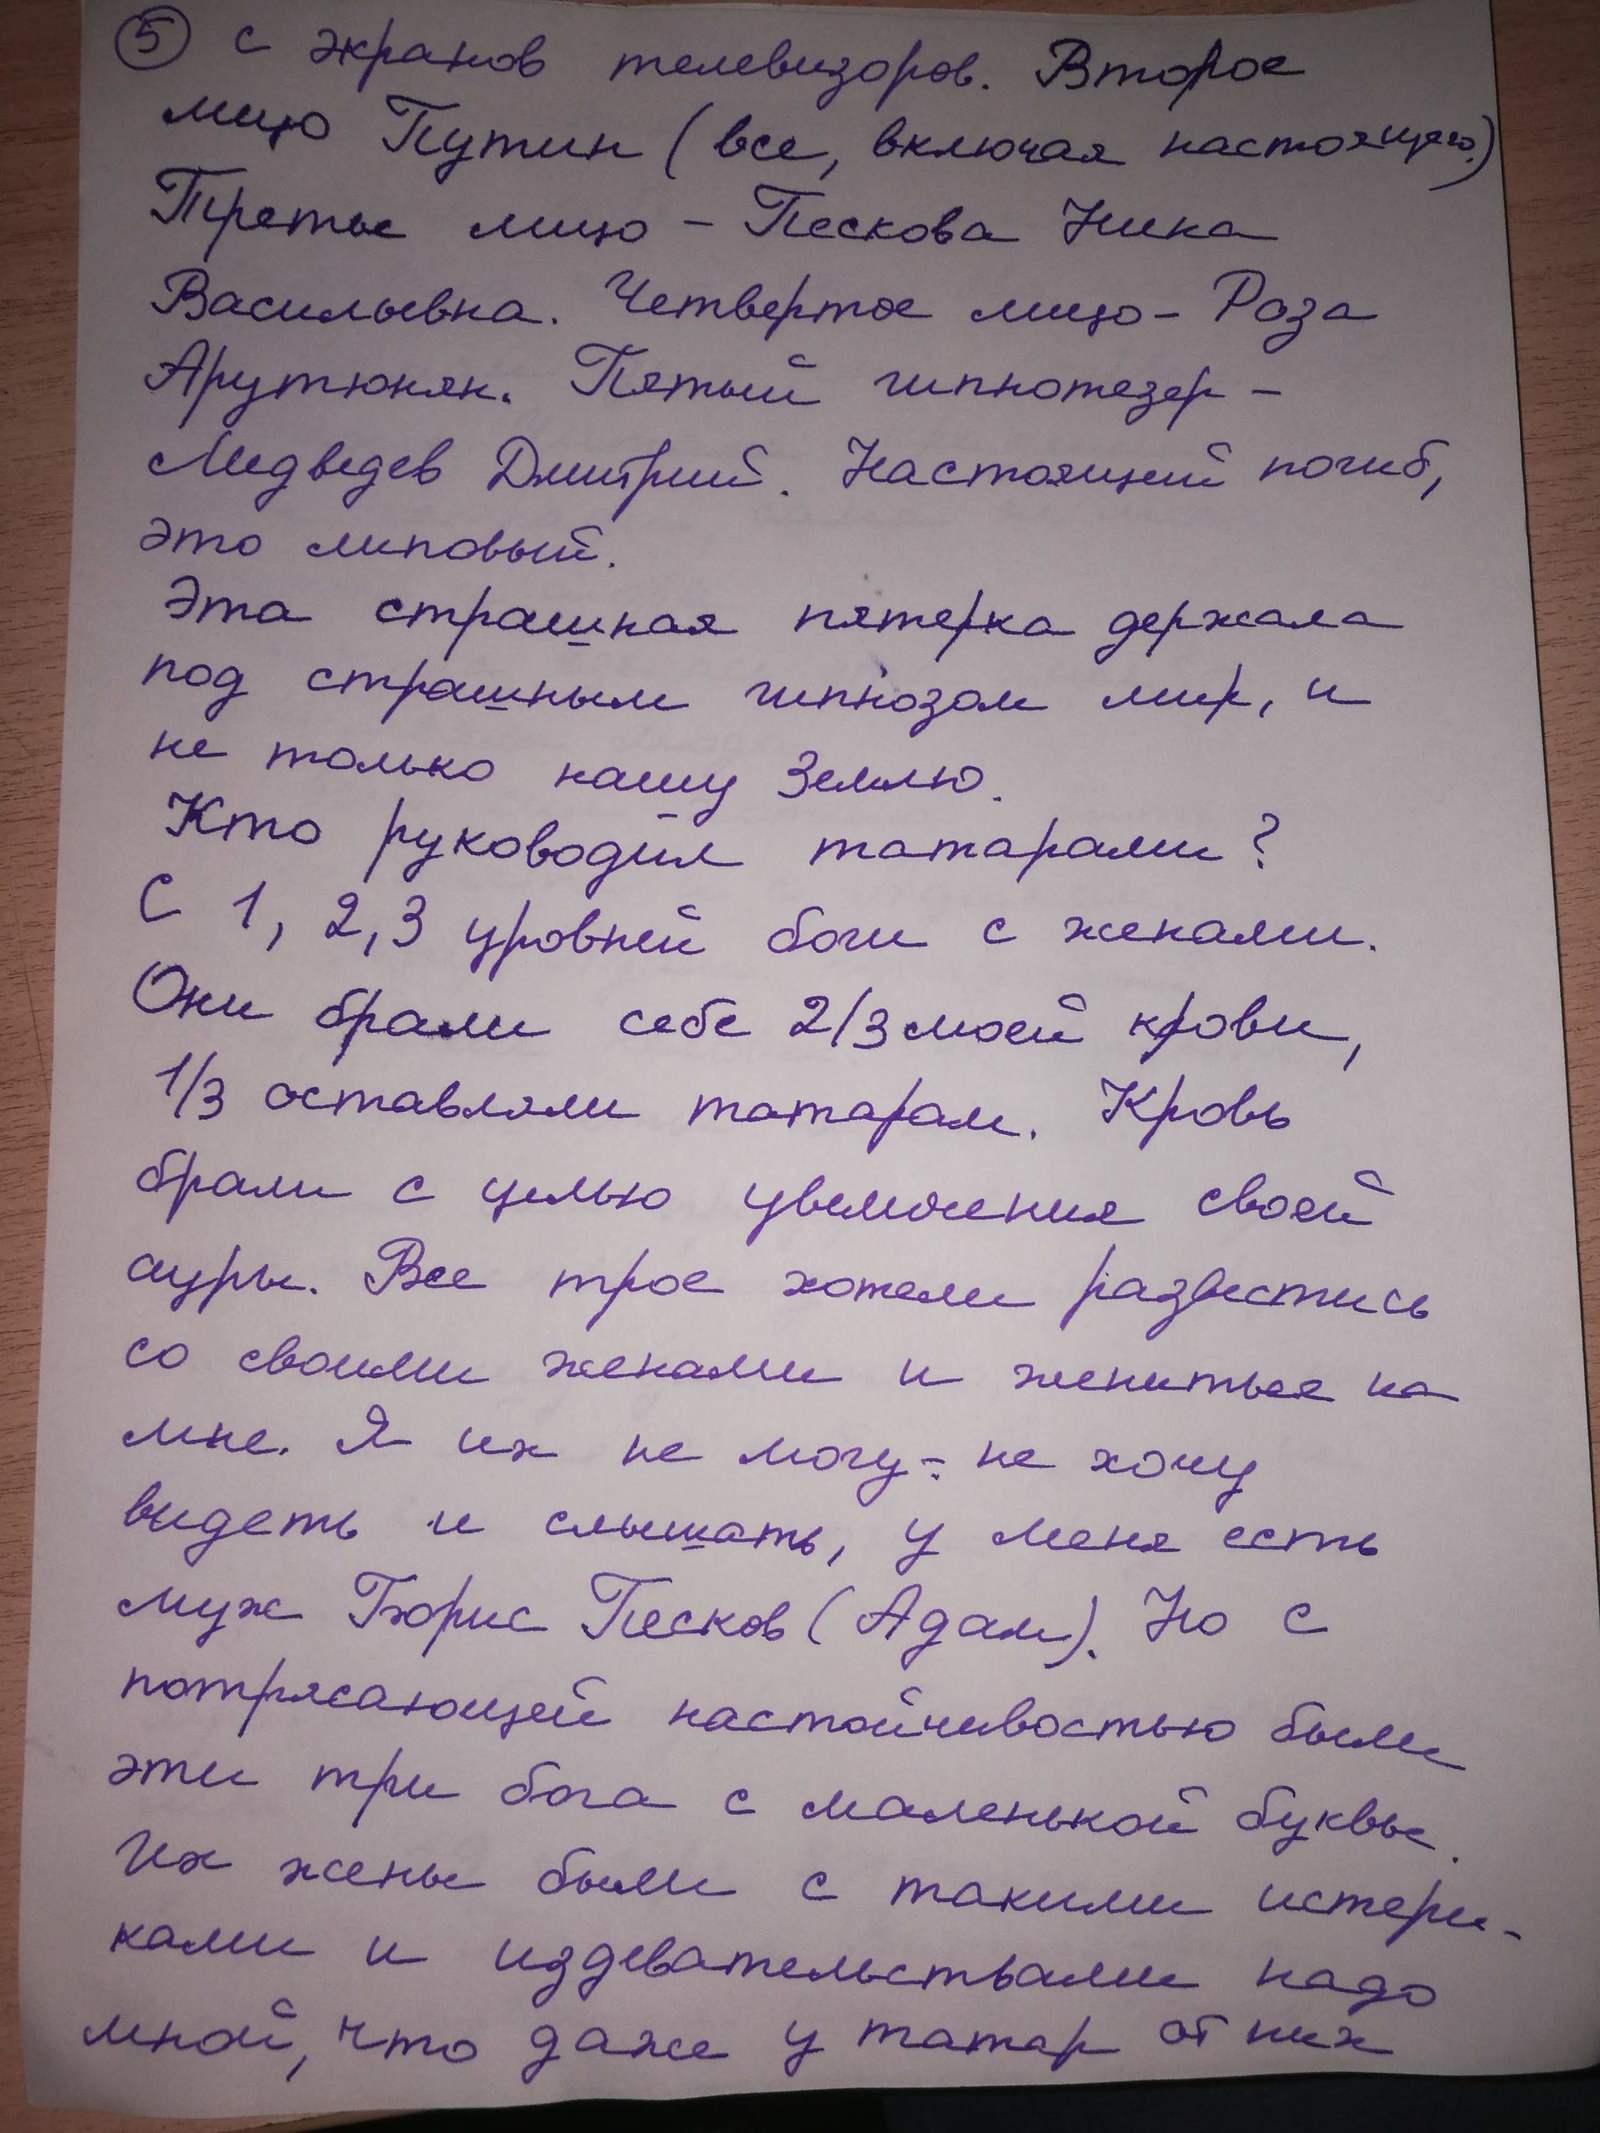 ⑤ с экранов телевизоров. Второе
лицо Путин (все, включая настоящего.)
Третье лицо – Пескова Ника
Васильевна. Четвертое лицо – Роза
Арутюнян. Пятый гипнотезер –
Медведев Дмитрий. Настоящий погиб,
это липовый.
Эта страшная пятерка держала
под страшным гипнозом мир, и
не только нашу Землю.
Кто руководил татарами?
С 1, 2, 3 уровней боги с женами.
Они брали себе 2/3 моей крови,
1/3 оставляли татарам. Кровь
брали с целью увеличения своей
ауры. Все трое хотели развестись
со своими женами и жениться на
мне. Я их не могу – не хочу
видеть и слышать, у меня есть
муж Борис Песков (Адам). Но с
потрясающей настойчивостью были
эти три бога с маленькой буквы.
Их жены были с такими истери-
ками и издевательствами надо
мной, что даже у татар от них